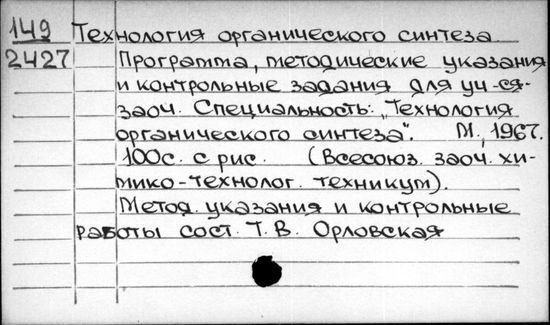 149 Технология органического синтеза.
2427 Программа, методические указания
и контрольные задания для уч-ся-
заоч. Специальность: „Технология
органического синтеза". М., 1967.
100с. с рис. (Всесоюз. заоч. хи-
мико-технолог. техникум).
Метод. указания и контрольные
работы сост. Т. В. Орловская